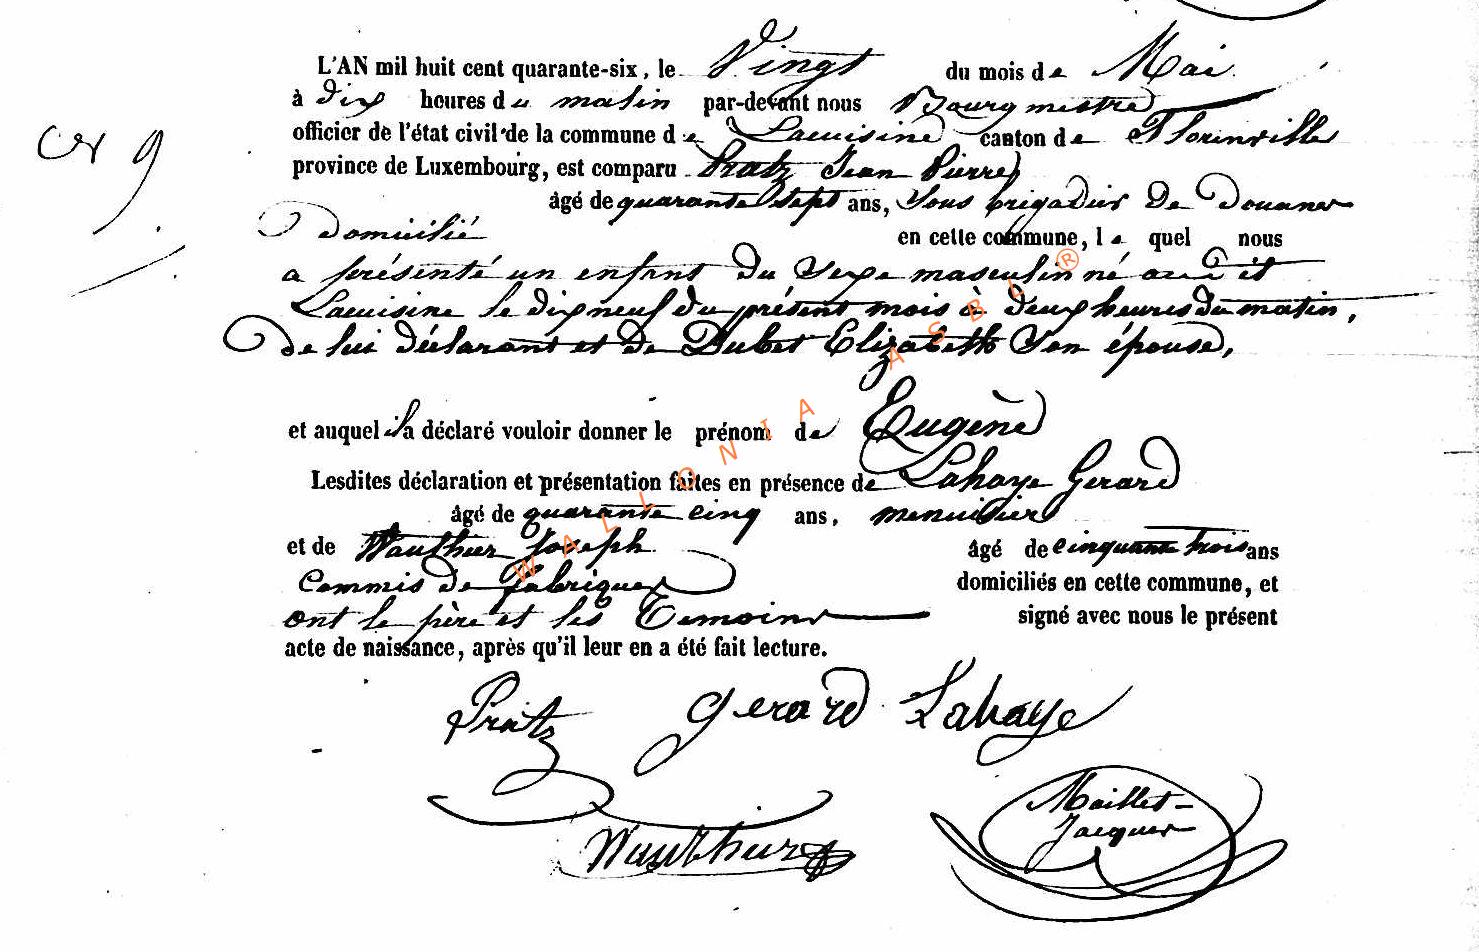 L'AN mil huit cent quarante-six, le Vingt du mois de Mai
à dix heures du matin par-devant nous Bourgmestre
officier de l'état civil de la commune de Lacuisine canton de Florenville
province de Luxembourg, est comparu Pratz Jean Pierre
âgé de quarante sept ans, Sous brigadier de Douanes
Domicilié en cette commune, le quel nous
a présenté un enfant du Sexe masculin né
Lacuisine le dix neuf du présent mois à deux heures du matin,
de lui déclarant et de Dubet Elizabeth Son épouse,
et auquel il a déclaré vouloir donner le prénom de Eugène
Lesdites déclaration et présentation faites en présence de Lahaye Gerard
âgé de quarante cinq ans, menuisier
et de Wauthier Joseph âgé de cinquante trois ans
Commis de fabriques domiciliés en cette commune, et
ont le père et les Temoins signé avec nous le présent
acte de naissance, après qu'il leur en a été fait lecture.
Pratz Gerard Lahaye
Wauthier
Maillet-
Jacques
WALLONIA ASBL ®